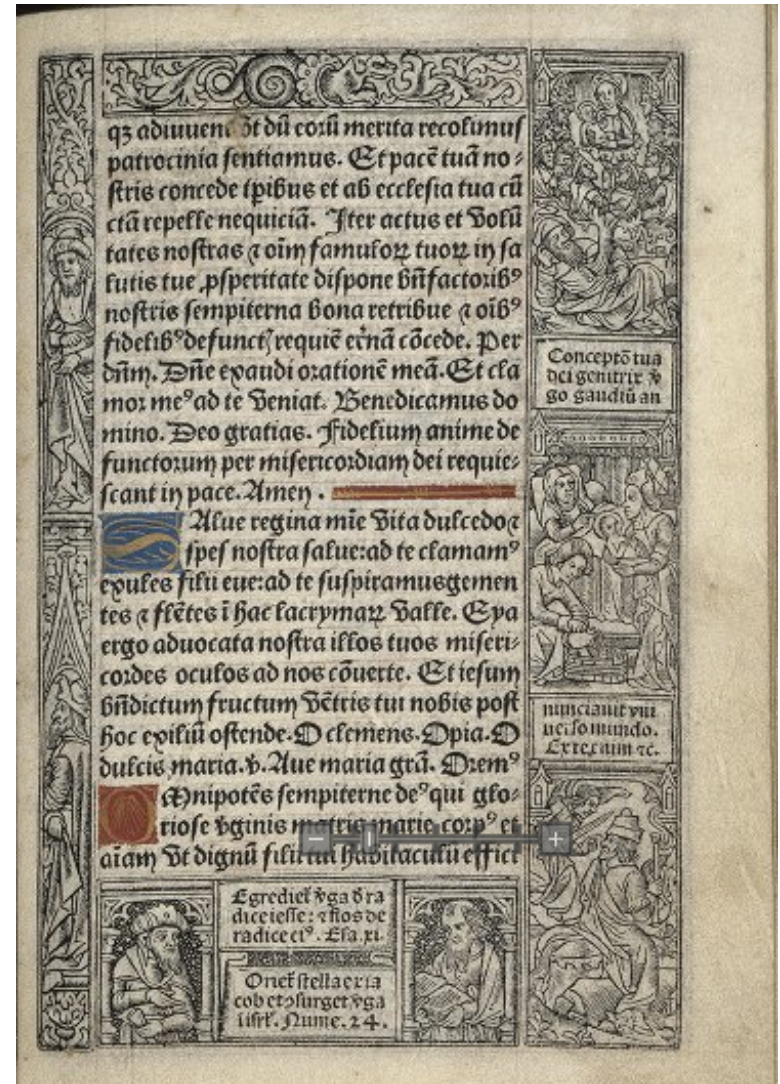 qꝫ adiuuent ut dū coꝝū merita recolimus
patrocinia sentiamus. Et pacē tuā no⸗
stris concede tꝑibus et ab ecclesia tua cū
ctā repelle nequiciā. Iter actus et volū
tates nostras ⁊ oīm famuloꝝ tuoꝝ in sa
lutis tue ꝓsperitate dispone bn̄factoribꝰ
nostris sempiterna bona retribue ⁊ oībꝰ
fidelibꝰ defunct requiē et̄nā cōcede. Per
dn̄m. Dn̄e exaudi orationē meā. Et cla
mor meꝰ ad te veniat. Benedicamus do
mino. Deo gratias. Fidelium anime de
functorum per misericordiam dei requie⸗
scant in pace. Amen.
SAlue regina mīe vita dulcedo ⁊
spes nostra salue: ad te clamamꝰ
exules filii eue: ad te suspiramus gemen
tes ⁊ flētes ī hac lacrymaꝝ valle. Eya
ergo aduocata nostra illos tuos miseri⸗
cordes oculos ad nos cōuerte. Et iesum
bn̄dictum fructum vētris tui nobis post
hoc exiliū ostende. O clemens. O pia. O
dulcis maria. v̄. Aue maria grā. Oremꝰ
OMnipotēs sempiterne deꝰ qui glo⸗
riose v̄ginis matris marie corpꝰ et
aīam vt dignū filii tui habitaculū effici
Conceptō tua
dei genitrix v̄
go gaudiū an
nunciauit vni
uerso mundo.
Ex te enim ⁊c.
Egrediet v̄ga d̄ ra
dice iesse: ⁊ flos de
radice eiꝰ. Esa. xi.
Oriet stella ex ia
cob et ↄsurget v̄ga
isrl. Nume. 24.